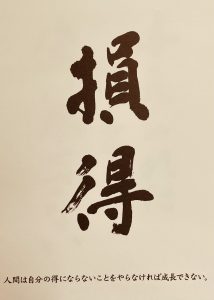 損得
人間は自分の得にならないことをやらなければ成長できない。